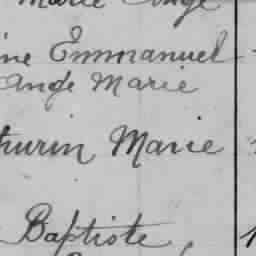 Marie Ange
ne Emmanuel
Ange Marie
thurin Marie
Baptiste,